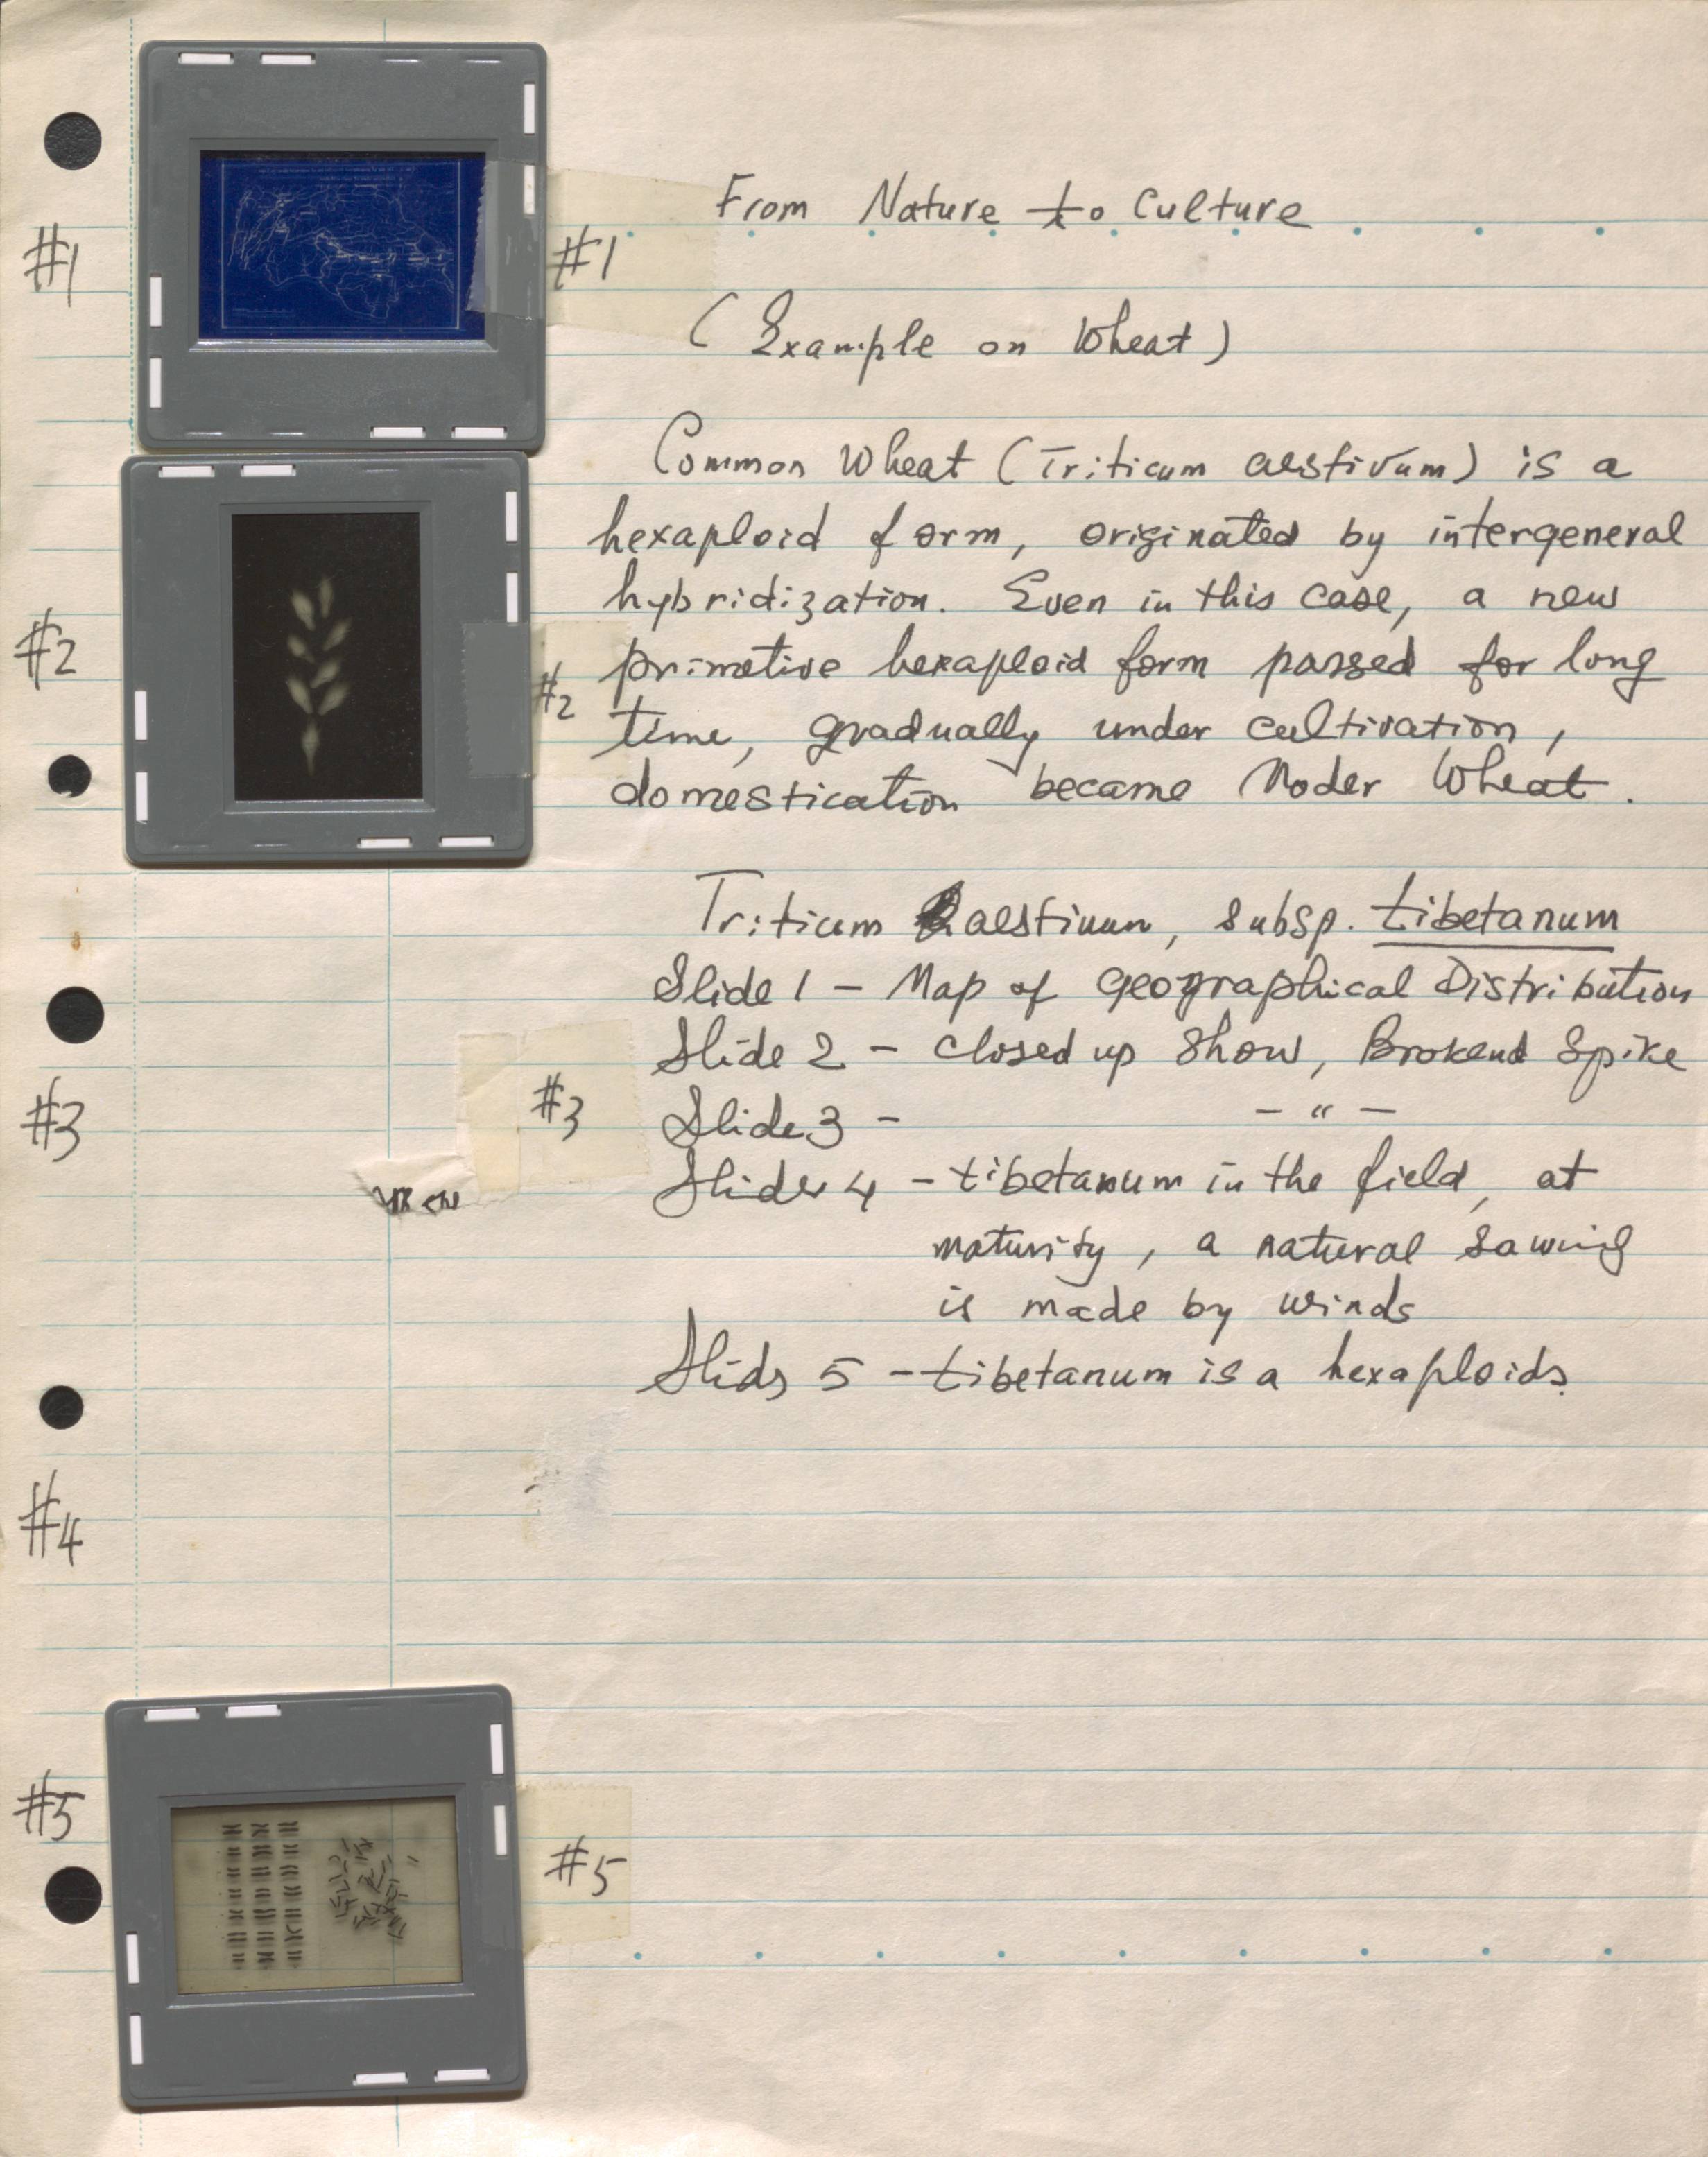 #1
#1
From Nature to Culture
(Example on Wheat)
Common Wheat (Triticum aestivum) is a
hexaploid form, originated by intergeneral
hybridization. Even in this case, a new
#2
#2
primetive hexaploid form passed for long
time, gradually under cultivation,
domestication became Moder Wheat.
Triticum aestivum, subsp. tibetanum
Slide 1 – Map of Geographical Distribution
Slide 2 – Closed up Show, Brokend Spike
#3
#3
Slide 3 – – " –
Slide 4 – tibetanum in the field, at
maturity, a natural sawing
is made by winds
Slids 5 – tibetanum is a hexaploids.
#4
#5
#5